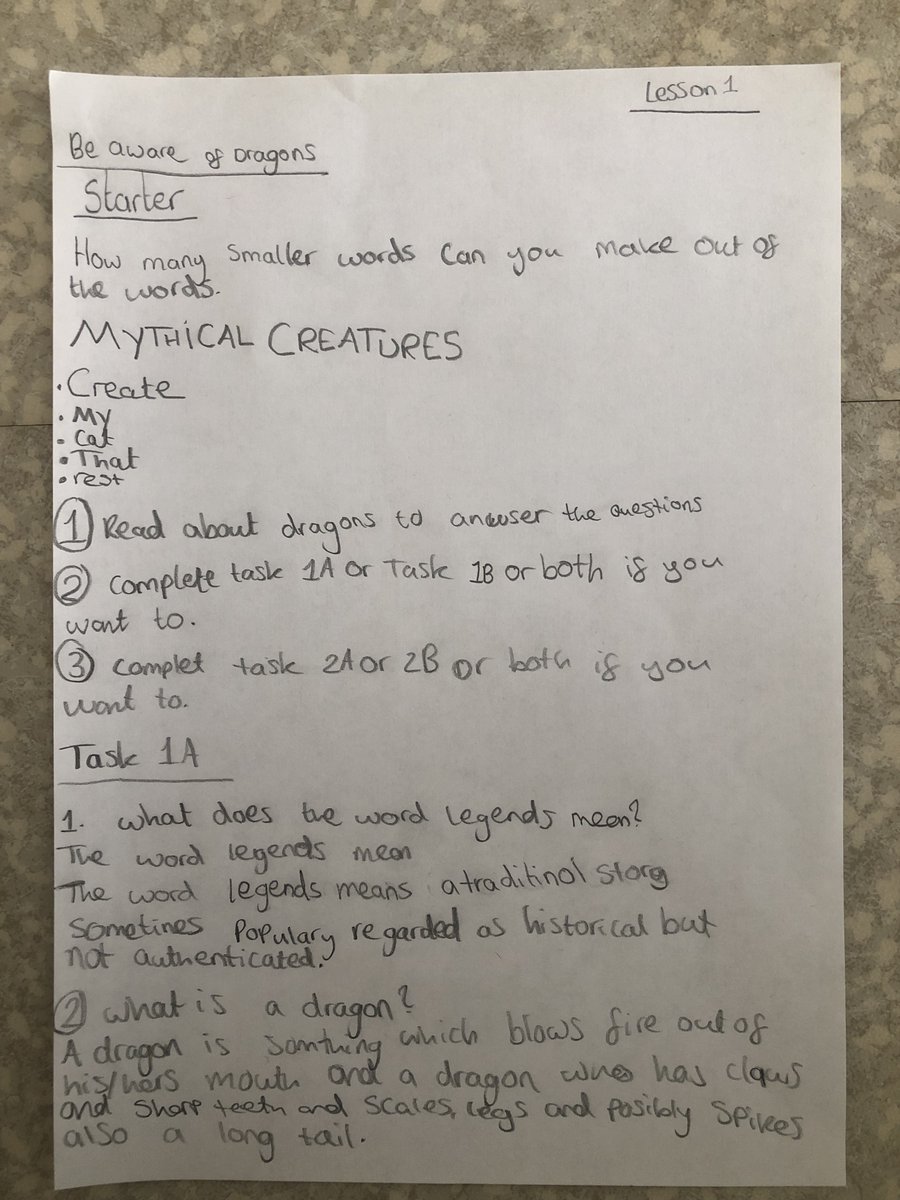 Lesson 1
Be aware of Dragons
Starter
How many smaller words can you make out of
the words.
MYTHICAL CREATURES
• Create
• My
• Cat
• That
• rest
① Read about dragons to anewser the questions
② complete task 1A or Task 1B or both if you
want to.
③ complet task 2A or 2B or both if you
want to.
Task 1A
1. what does the word legends mean?
The word legends mean
The word legends means a traditinol story
sometimes populary regarded as historical but
not authenticated.
② what is a dragon?
A dragon is somthing which blows fire out of
his/hers mouth and a dragon has claws
and sharp teeth and scales, legs and posibly spikes
also a long tail.